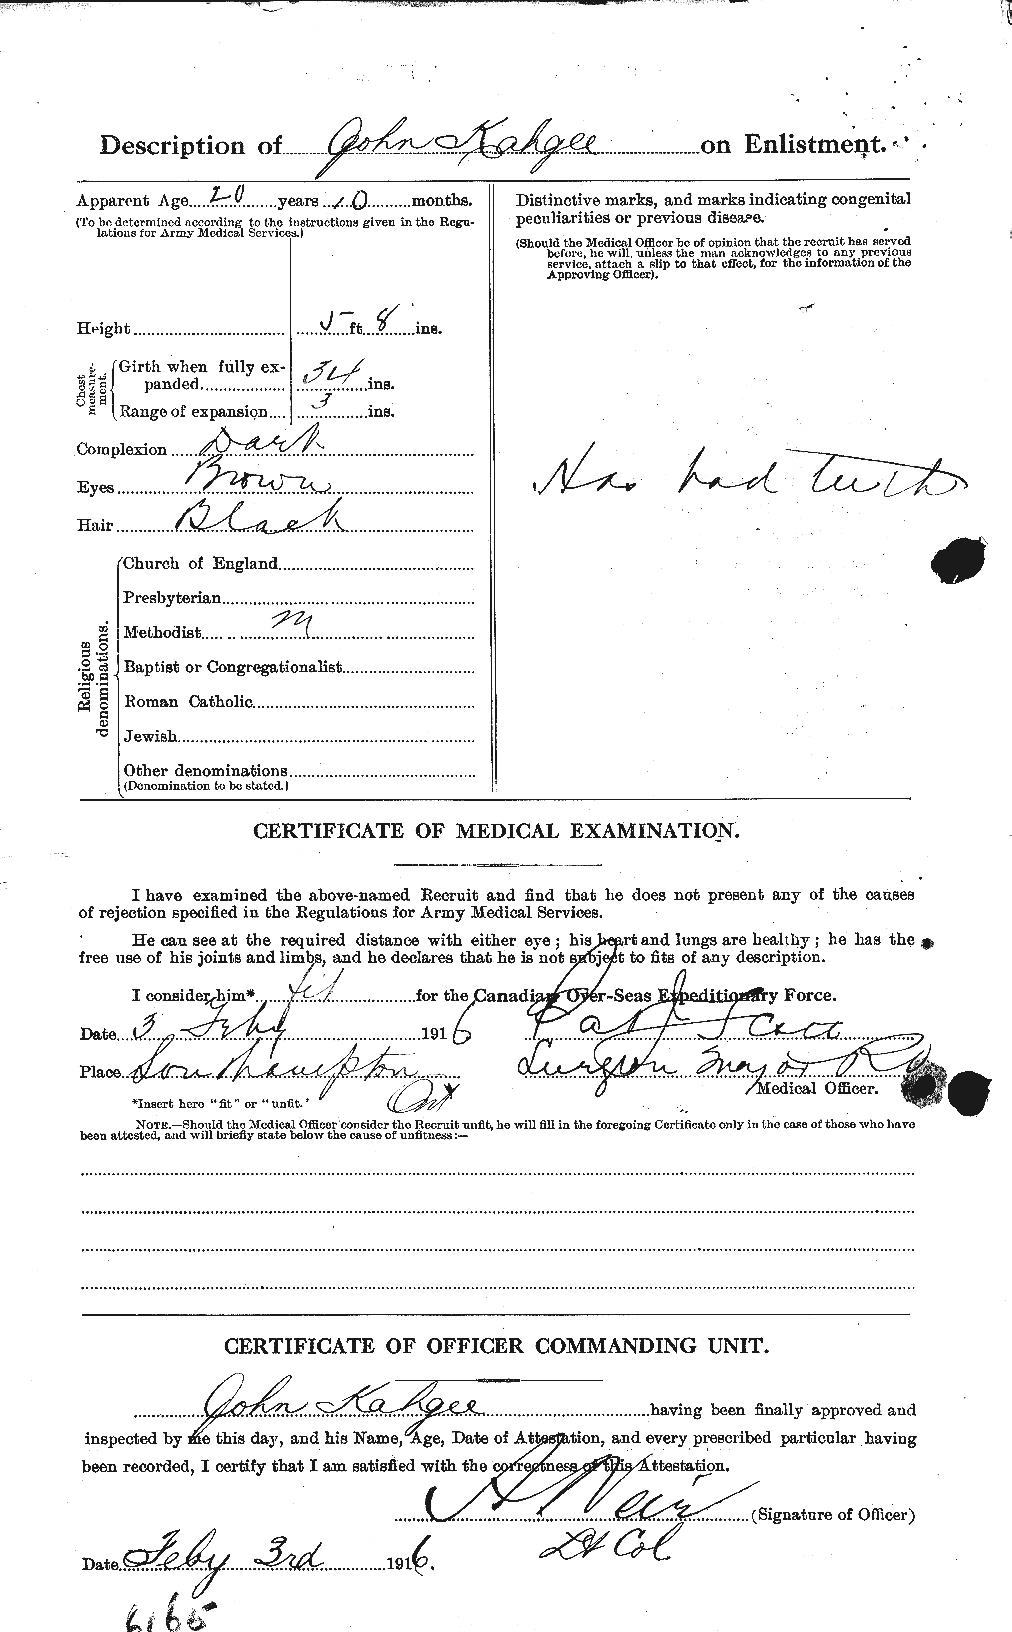 Description of John Kahgee on Enlistment.
Apparent Age 20 years 10 months.
(To be determined according to the instructions given in the Regu-
lations for Army Medical Services.)
Height 5 ft. 8 ins.
Chest measure-ment.
Girth when fully ex-
panded 34 ins.
Range of expansion 3 ins.
Complexion Dark
Eyes Brown
Hair Black
Religious denominations.
Church of England
Presbyterian
Methodist M
Baptist or Congregationalist
Roman Catholic
Jewish
Other denominations
(Denomination to be stated.)
Distinctive marks, and marks indicating congenital
peculiarities or previous disease.
(Should the Medical Officer be of opinion that the recruit has served
before, he will, unless the man acknowledges to any previous
service, attach a slip to that effect, for the information of the
Approving Officer).
Has bad teeth
CERTIFICATE OF MEDICAL EXAMINATION.
I have examined the above-named Recruit and find that he does not present any of the causes
of rejection specified in the Regulations for Army Medical Services.
He can see at the required distance with either eye; his heart and lungs are healthy; he has the
free use of his joints and limbs, and he declares that he is not subject to fits of any description.
I consider him* fit for the Canadian Over-Seas Expeditionary Force.
Date 3 Feby 1916 Scott
Place Southampton Surgeon Major
Ont Medical Officer.
*Insert here "fit" or "unfit."
NOTE.—Should the Medical Officer consider the Recruit unfit, he will fill in the foregoing Certificate only in the case of those who have
been attested, and will briefly state below the cause of unfitness:—
CERTIFICATE OF OFFICER COMMANDING UNIT.
John Kahgee having been finally approved and
inspected by me this day, and his Name, Age, Date of Attestation, and every prescribed particular having
been recorded, I certify that I am satisfied with the correctness of this Attestation.
A Weir (Signature of Officer)
Lt Col
Date Feby 3rd 1916.